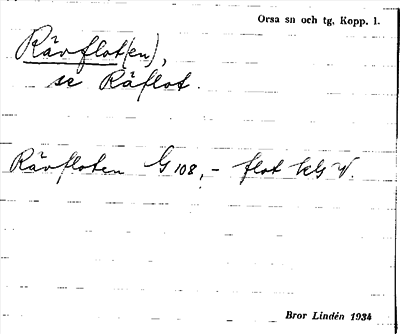 Orsa sn och tg, Kopp. l.
Rävflot(en),
se Räflot.
Rävfloten G 108, - flot
Bror Lindén 1934